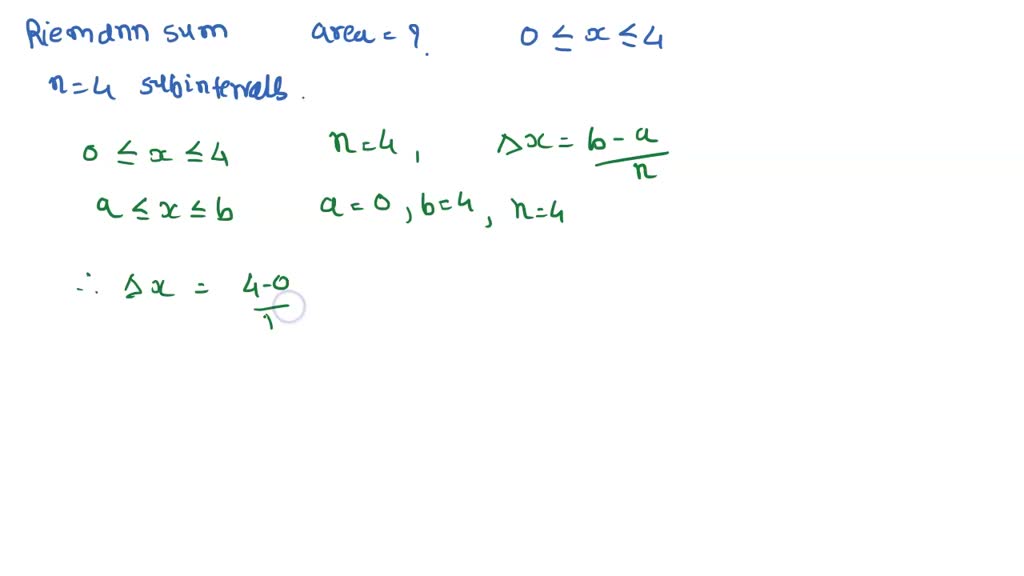 Riemann sum area = ? 0 ≤ x ≤ 4
n=4 subintervals.
0 ≤ x ≤ 4 n=4, Δx = b-a/n
a ≤ x ≤ b a=0, b=4, n=4
∴ Δx = 4-0/